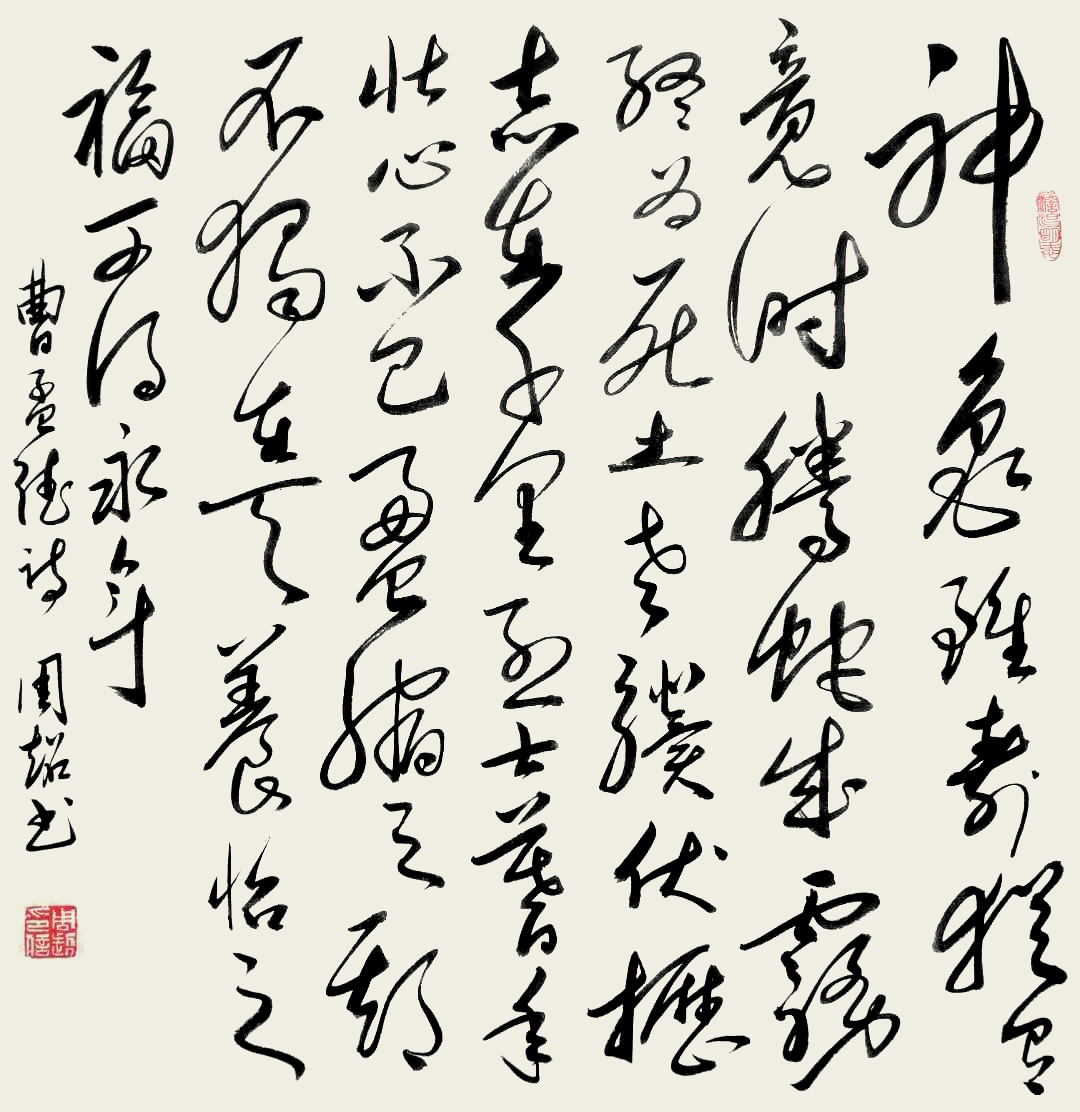 神龜雖壽猶有
竟时騰蛇成霧
終为灰土老驥伏櫪
志在千里烈士暮年
壮心不已盈縮之期
不獨在天養怡之
福可得永年
曹孟德诗 周超书